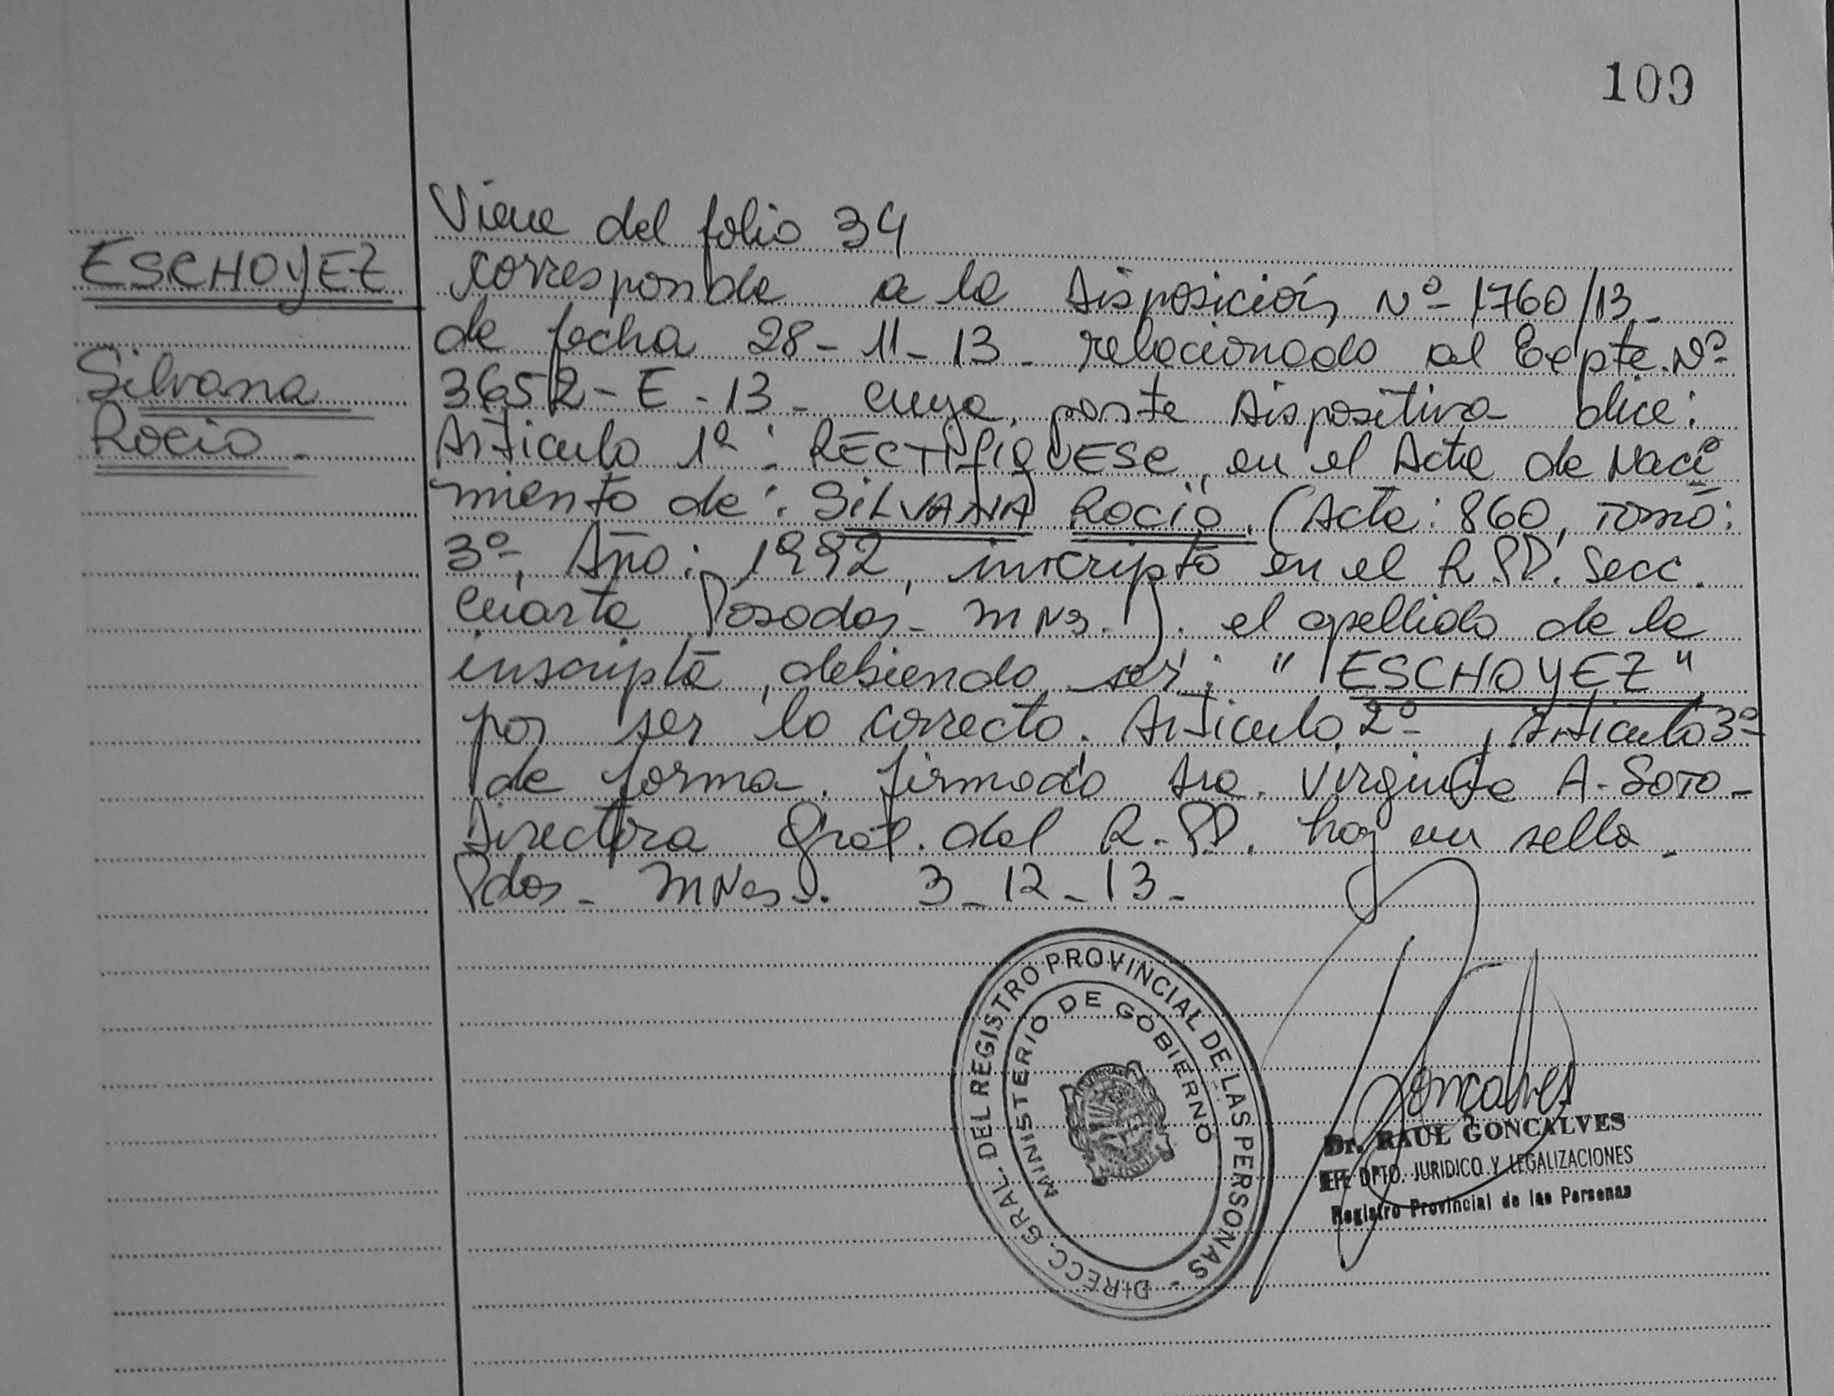 109
ESCHOYEZ
Silvana
Rocio.
Viene del folio 34
corresponde a la Disposición Nº 1760/13.
de fecha 28-11-13. relacionado al Expte. Nº
3652-E-13. cuya parte dispositiva dice:
Articulo 1º: RECTIFIQUESE, en el Acta de Naci
miento de: SILVANA ROCIO. (Acta: 860, Tomo:
3º, Año: 1992, inscripta en el R.P.P. Secc.
Cuarta Posadas. MNES.). el apellido de la
inscripta, debiendo ser: "ESCHOYEZ"
por ser lo correcto. Articulo 2º, Articulo 3º
de forma. firmado Sra. Virginia A. Soto-
Directora Gral. del R.P.P. hay un sello.
Pdas. MNes. 3-12-13-
DIRECC. GRAL. DEL REGISTRO PROVINCIAL DE LAS PERSONAS -
MINISTERIO DE GOBIERNO
Goncalves
Dr. RAUL GONCALVES
JEFE DPTO. JURIDICO Y LEGALIZACIONES
Registro Provincial de las Personas